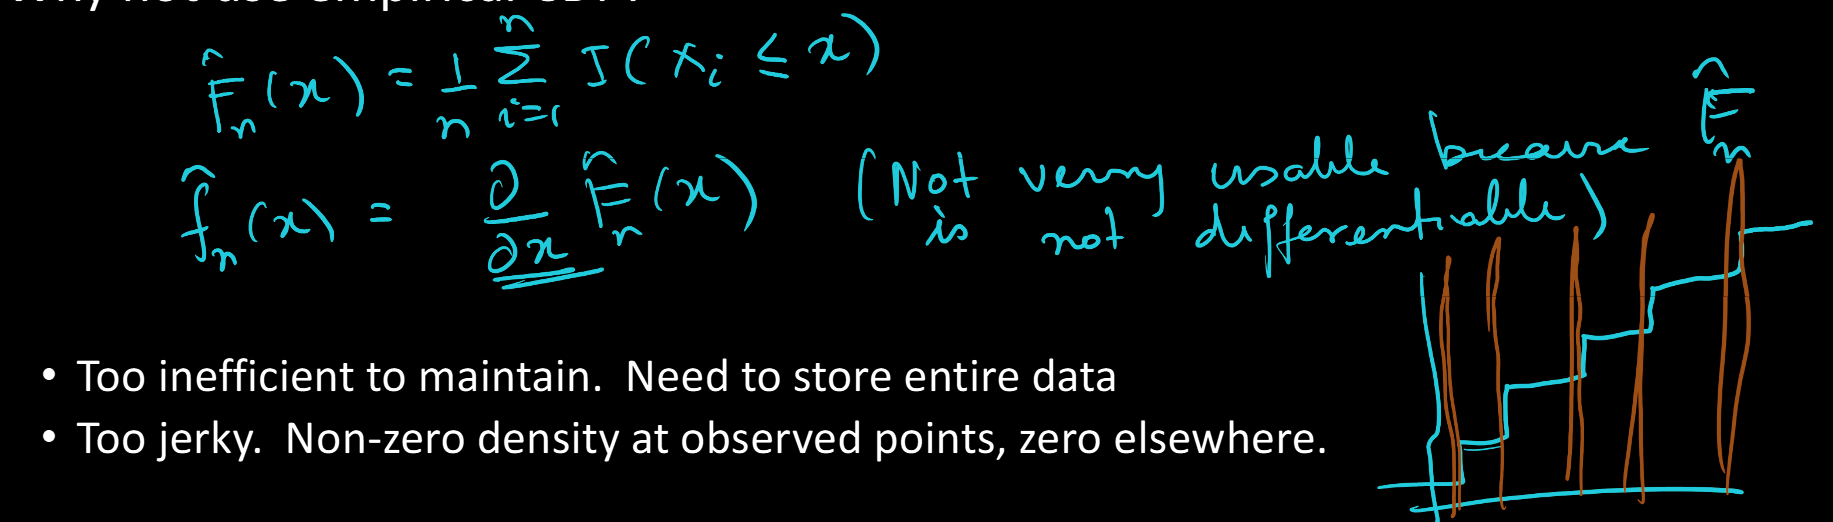 Why not use empirical CDF?
F̂ₙ(x) = 1/n Σᵢ₌₁ⁿ I(Xᵢ ≤ x)
f̂ₙ(x) = ∂/∂x F̂ₙ(x) (Not very usable because
is not differentiable)
F̂ₙ
• Too inefficient to maintain. Need to store entire data
• Too jerky. Non-zero density at observed points, zero elsewhere.